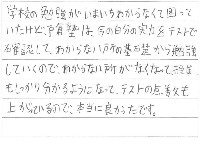 学校の勉強がいまいちわからなくて困って
いたけど、育塾は、今の自分の実力をテストで
確認して、わからない所の基礎から勉強
していくので、わからない所がなくなって、授業
もしっかり分かるようになって、テストの点数も
上がっているので、本当に良かったです。